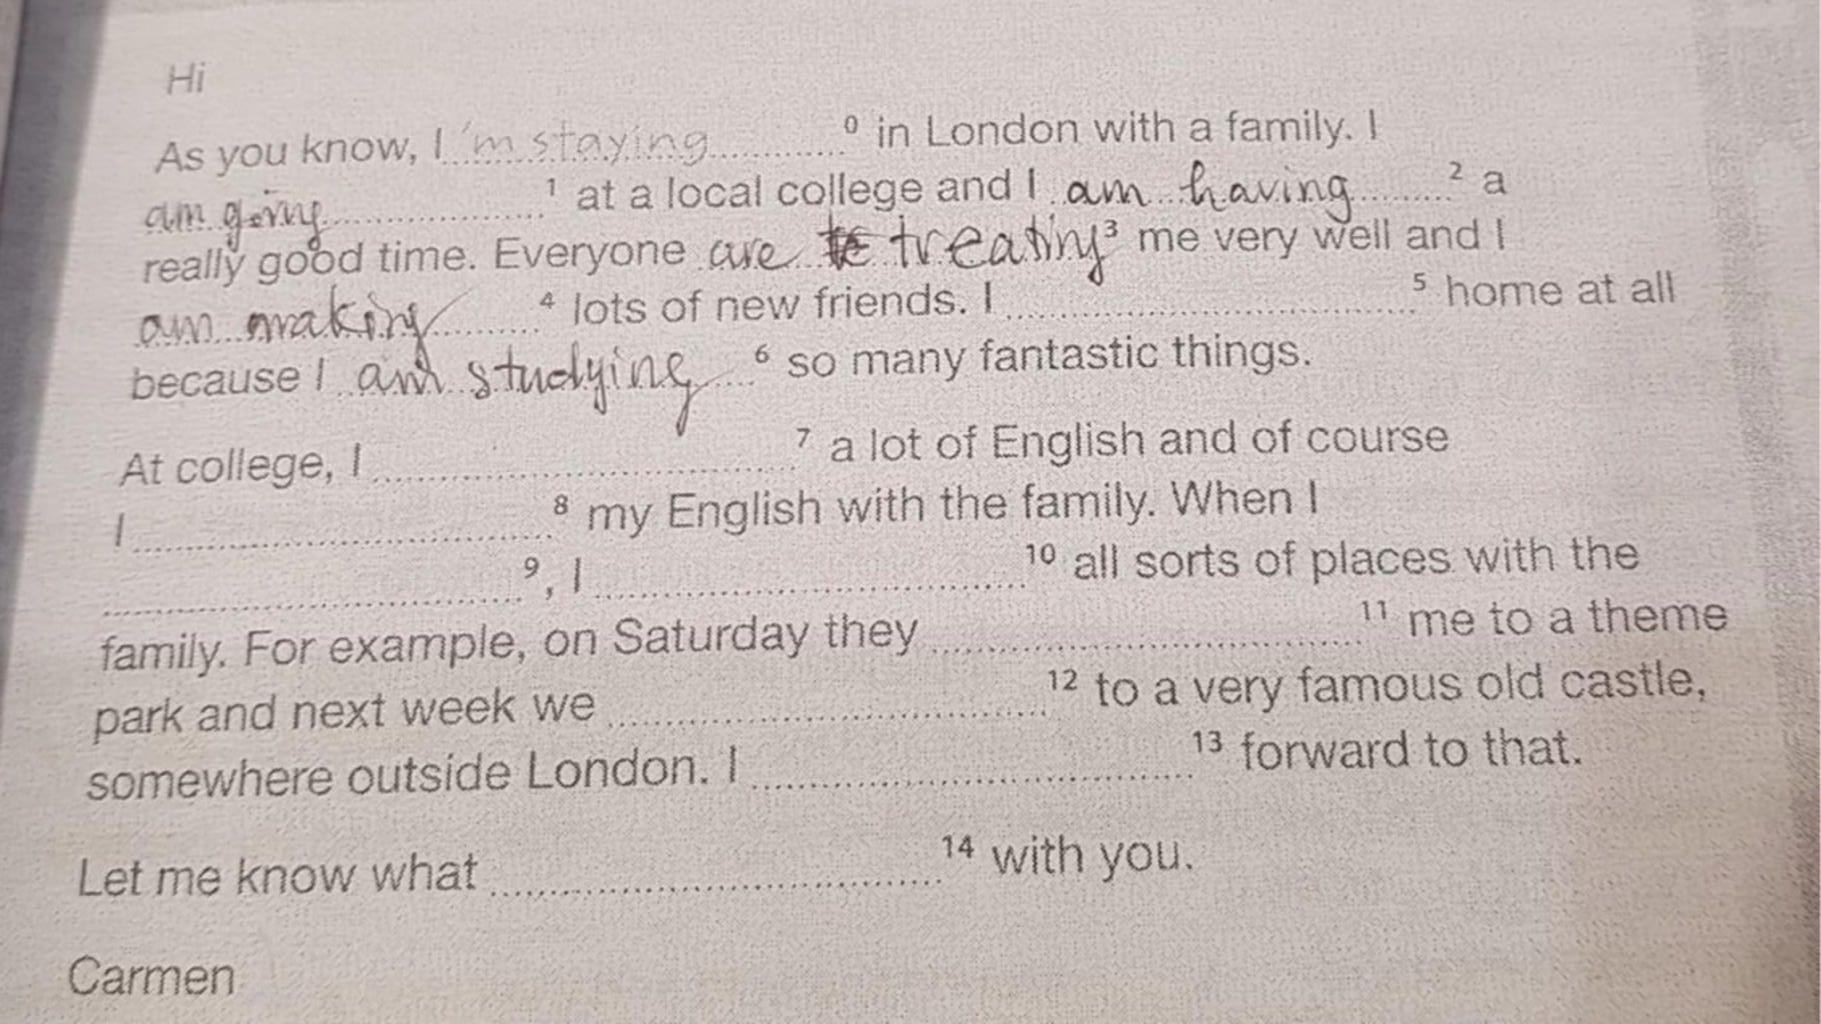 Hi
As you know, I 'm staying ⁰ in London with a family. I
am going ¹ at a local college and I am having ² a
really good time. Everyone are treating ³ me very well and I
am making ⁴ lots of new friends. I ⁵ home at all
because I am studying ⁶ so many fantastic things.
At college, I ⁷ a lot of English and of course
I ⁸ my English with the family. When I
⁹, I ¹⁰ all sorts of places with the
family. For example, on Saturday they ¹¹ me to a theme
park and next week we ¹² to a very famous old castle,
somewhere outside London. I ¹³ forward to that.
Let me know what ¹⁴ with you.
Carmen